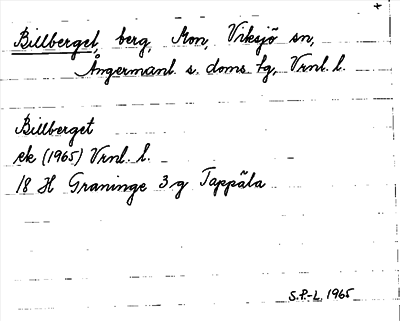 Billberget, berg, Mon, Viksjö sn,
Ångermanl. s. doms. tg, Vrnl. l.
Billberget
ek (1965) Vrnl. l.
18 H Graninge 3 g Tappäla
S.P.-L. 1965